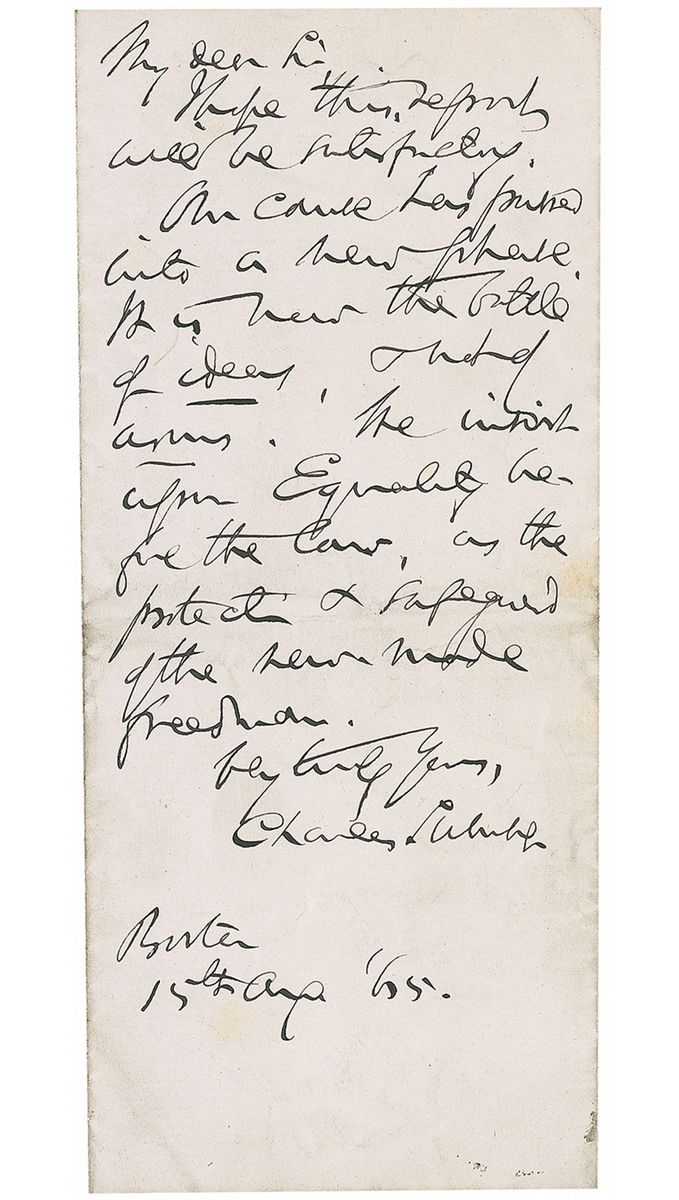 My dear Sir,
I hope this report
will be satisfactory.
Our cause has passed
into a new phase.
It is now the battle
of ideas, & not of
arms. We insist
upon Equality be-
fore the law, as the
protection & safeguard
of the new made
freedman.
Very truly Yours,
Charles Sumner
Boston
15th Aug '65.